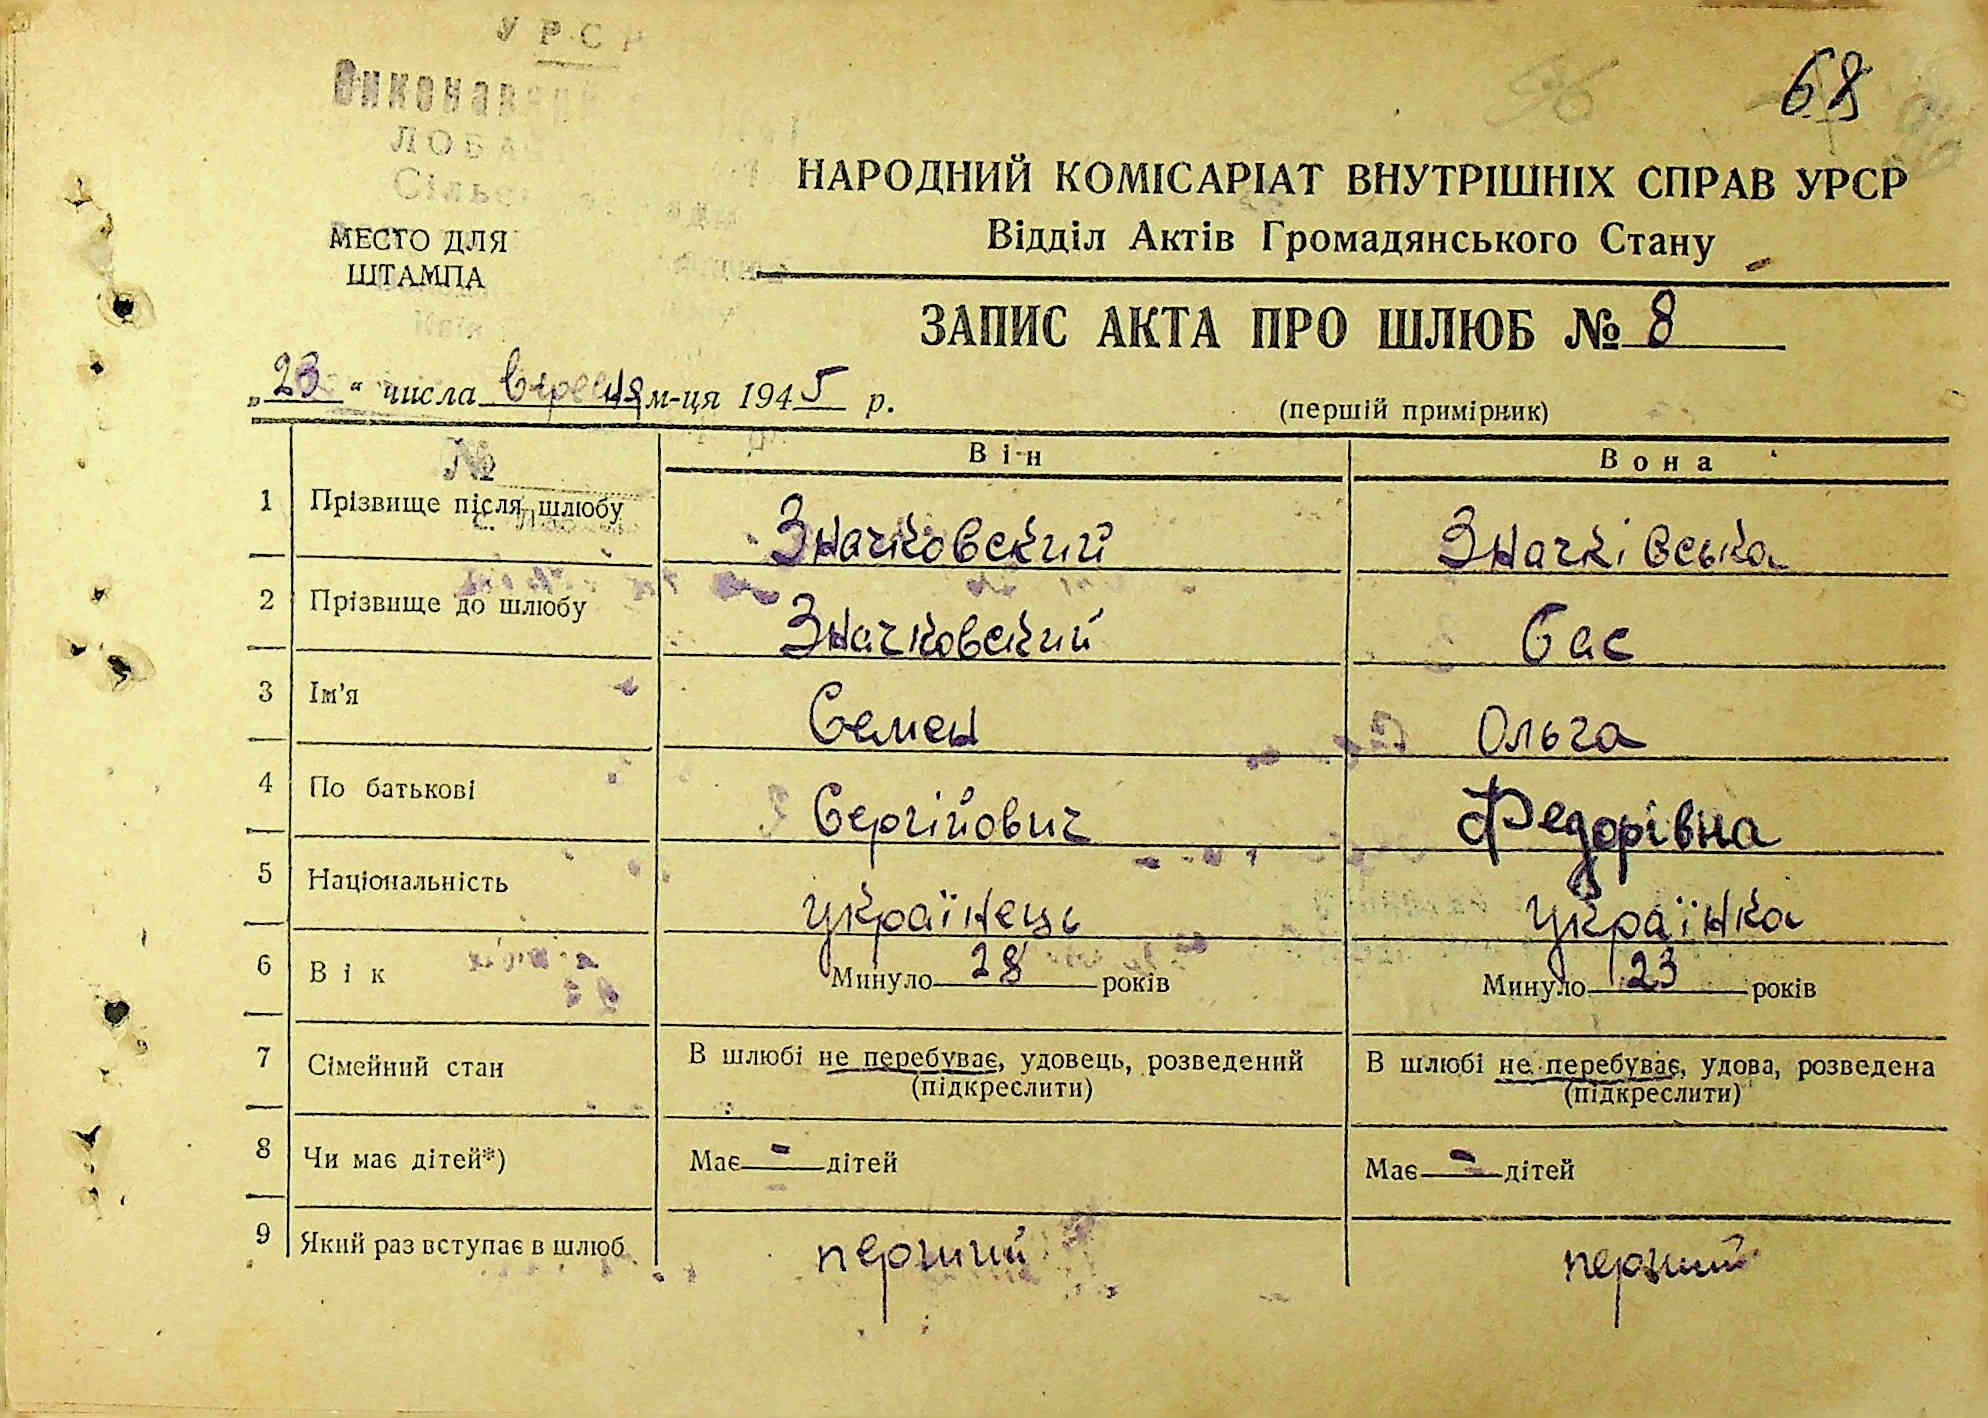 УРСР
68
НАРОДНИЙ КОМІСАРІАТ ВНУТРІШНІХ СПРАВ УРСР
Відділ Актів Громадянського Стану
МЕСТО ДЛЯ
ШТАМПА
ЗАПИС АКТА ПРО ШЛЮБ № 8
„23“ числа вересня м-ця 1945 р.
(першій примірник)
№
Він Вона
1 Прізвище після шлюбу Значковский Значківська
2 Прізвище до шлюбу Значковский Бас
3 Ім'я Семен Ольга
4 По батькові Сергійович Федорівна
5 Національність українець українка
6 Вік Минуло 28 років Минуло 23 років
7 Сімейний стан В шлюбі не перебуває, удовець, розведений В шлюбі не перебуває, удова, розведена
(підкреслити) (підкреслити)
8 Чи має дітей*) Має - дітей Має - дітей
9 Який раз вступає в шлюб перший перший